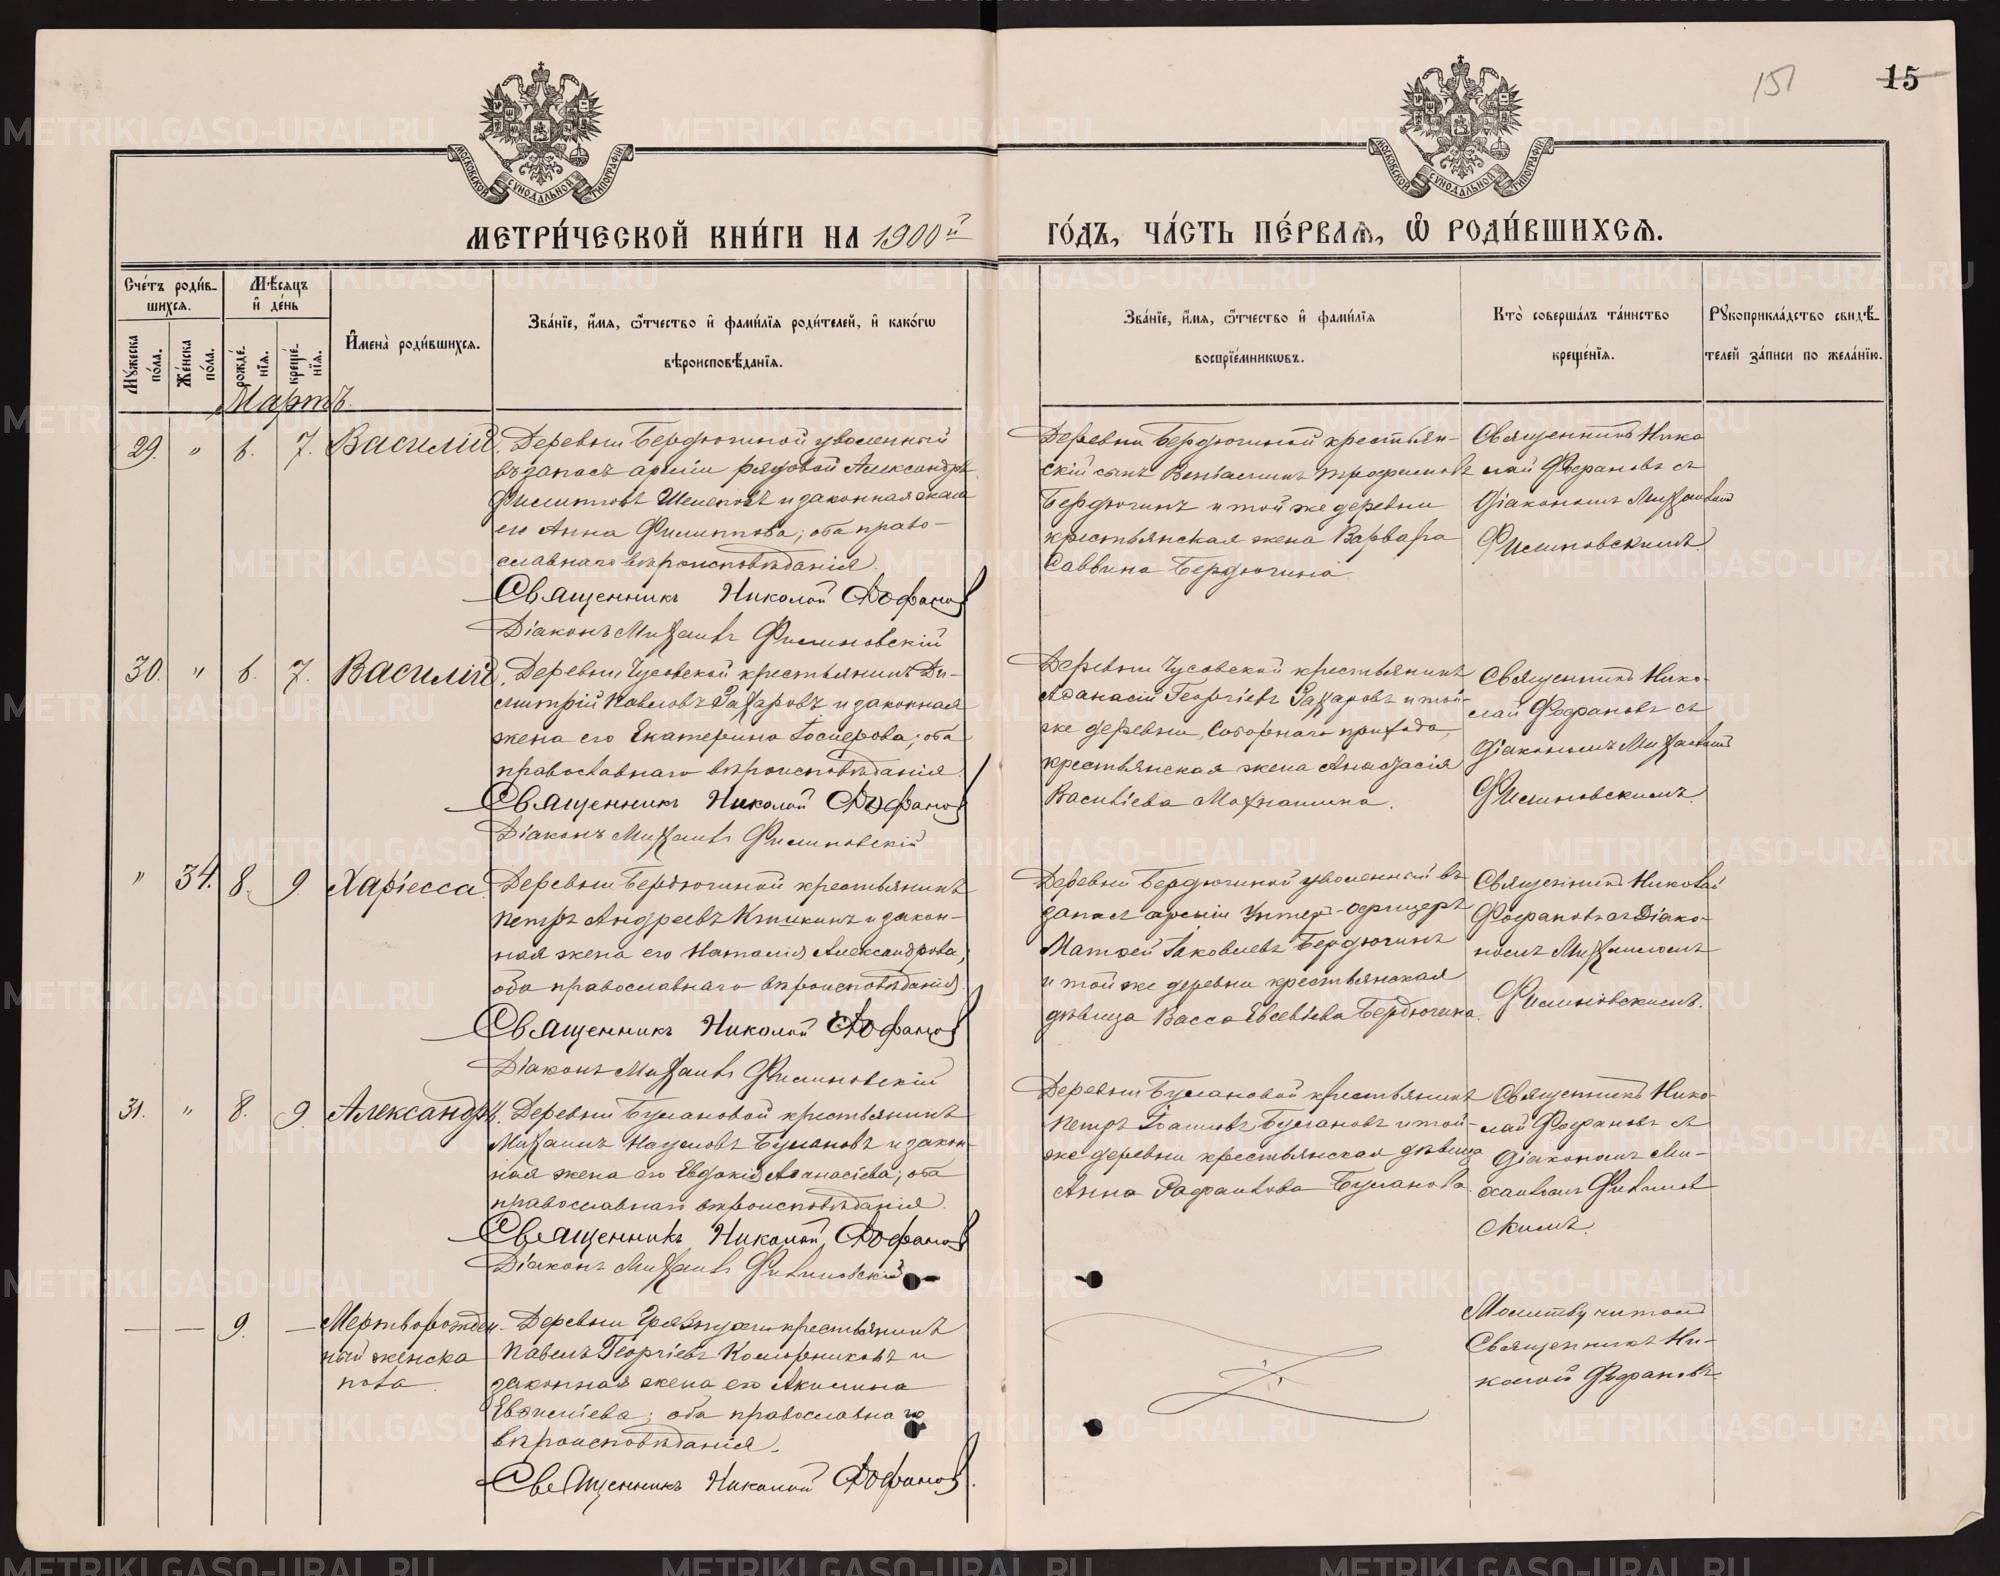 15
151
МОСКОВСКОЙ СУНОДАЛЬНОЙ ТИПОГРАФІИ
МОСКОВСКОЙ СУНОДАЛЬНОЙ ТИПОГРАФІИ
МЕТРИ́ЧЕСКОЙ КНИ́ГИ НА 1900й
ГО́ДЪ, ЧА́СТЬ ПЕ́РВАѦ, Ѡ҆ РОДИ́ВШИХСѦ.
Сче́тъ роди́в-
шихсѧ.
Мѣ́сѧцъ
и҆ де́нь
Мꙋ́жеска по́ла.
Же́нска по́ла.
рожде́-
нїѧ.
креще́-
нїѧ.
И҆мена̀ роди́вшихсѧ.
Зва́нїе, и҆́мѧ, ѻ҆́тчество и҆ фами́лїѧ роди́телей, и҆ како́гѡ
вѣроисповѣ́данїѧ.
Зва́нїе, и҆́мѧ, ѻ҆́тчество и҆ фами́лїѧ
воспрїе́мникѡвъ.
Кто̀ соверша́лъ та́инство
креще́нїѧ.
Рꙋкоприкла́дство свидѣ́-
телей за́писи по жела́нїю.
Мартъ.
29. " 6. 7. Василій.
Деревни Бердюгиной уволенный
въ запасъ арміи рядовой Александръ
Филипповъ Шелеповъ и законная жена
его Анна Филиппова; оба право-
славнаго вѣроисповѣданія.
Священникъ Николай Фофановъ
Діаконъ Михаилъ Филиновскій
Деревни Бердюгиной крестьян-
скій сынъ Веніаминъ Трофимовъ
Бердюгинъ и той же деревни
крестьянская жена Варвара
Саввина Бердюгина.
Священникъ Нико
лай Фофановъ съ
Діакономъ Михаиломъ
Филиновскимъ.
30. " 6. 7. Василій.
Деревни Чусовской крестьянинъ Ди-
митрій Павловъ Захаровъ и законная
жена его Екатерина; оба
православнаго вѣроисповѣданія.
Священникъ Николай Фофановъ
Діаконъ Михаилъ Филиновскій
Деревни Чусовской крестьянинъ
Аѳанасій Георгіевъ Захаровъ и той-
же деревни, Соборнаго прихода,
крестьянская жена Анастасія
Василіева.
Священникъ Нико-
лай Фофановъ съ
Діакономъ Михаиломъ
Филиновскимъ.
" 34. 8. 9. Харіесса.
Деревни Бердюгиной крестьянинъ
Петръ Андреевъ и закон-
ная жена его Наталія Александрова;
оба православнаго вѣроисповѣданія.
Священникъ Николай Фофановъ
Діаконъ Михаилъ Филиновскій
Деревни Бердюгиной уволенный въ
запасъ арміи Унтеръ-офицеръ
Матѳей Іаковлевъ Бердюгинъ
и той же деревни крестьянская
дѣвица Васса Евсевіева Бердюгина.
Священникъ Николай
Фофановъ съ Діако-
номъ Михаиломъ
Филиновскимъ.
31. " 8. 9. Александръ.
Деревни Булановой крестьянинъ
Михаилъ Наумовъ Булановъ и закон-
ная жена его Евдокія Аѳанасіева; оба
православнаго вѣроисповѣданія.
Священникъ Николай Фофановъ
Діаконъ Михаилъ Филиновскій
Деревни Булановой крестьянинъ
Петръ Булановъ и той-
же деревни крестьянская дѣвица
Анна Рафаилова Буланова.
Священникъ Нико-
лай Фофановъ съ
Діакономъ Ми-
хаиломъ Филинов
скимъ.
— — 9. — Мертворожден-
ный женска
пола.
Деревни крестьянинъ
Павелъ Георгіевъ и
законная жена его Акилина
; оба православнаго
вѣроисповѣданія.
Священникъ Николай Фофановъ.
Молитву читалъ
Священникъ Ни-
колай Фофановъ
METRIKI.GASO-URAL.RU